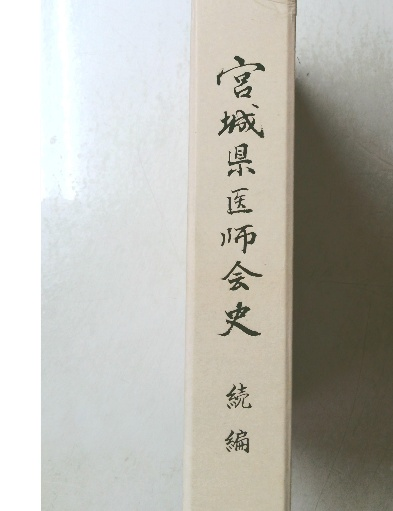 宮城県医師会史
続編